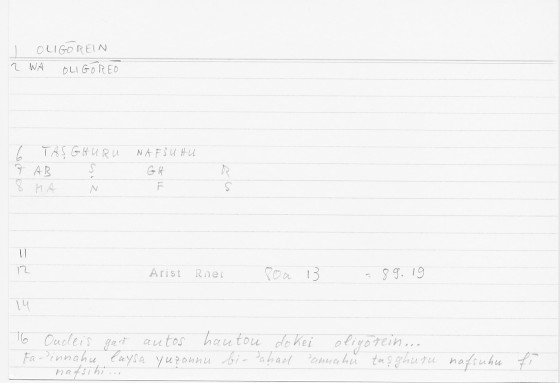 1 OLIGŌREIN
2 WA OLIGŌREŌ
6 TAṢGHURU NAFSUHU
7 AB Ṣ GH R
8 MA N F S
11
12 Arist Rhet 80a 13 = 89.19
14
16 Oudeis gar autos hautou dokei oligōrein...
Fa-'innahu laysa yuẓannu bi-'aḥad 'annahu taṣghuru nafsuhu fī
nafsihi...